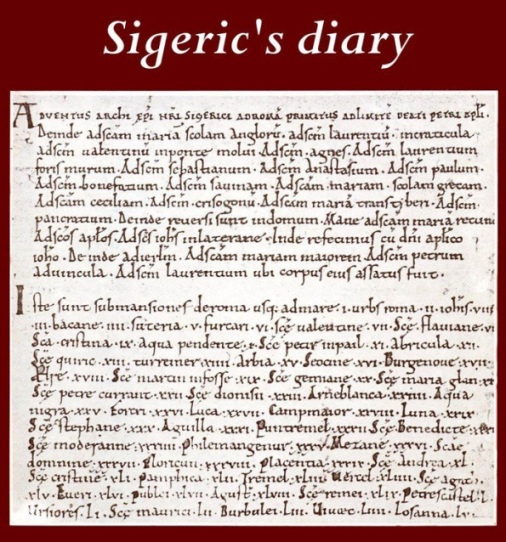 Sigeric's diary
ADVENTUS ARCHI EPI NRI SIGERICI AD ROMA PRIMITUS AD LIMITE BEATI PETRI APLI.
Deinde ad scam maria scolam angloru. Ad scm laurentiu. in craticula
Ad scm ualentinu in ponte molui. Ad sce agnes. Ad scm laurentium
foris murum. Ad scm sebastianum. Ad scm anastasium. Ad scm paulum.
Ad scm bonefatium. Ad scam sauinam. Ad scam mariam. scolam grecam.
Ad scam ceciliam. Ad scm. crisogonu. Ad scam maria transtyberi. Ad scm
pancratium. Deinde reuersi sunt in domum. Mane ad scam maria
Ad scos aplos. Ad scs iohs in laterane. Inde refecimus cu dn aplico
ioho. De inde ad ierlm. Ad scam mariam maiorem Ad scm petrum
ad uincula. Ad scm laurentium ubi corpus eius assatus fuit.
Iste sunt submansiones de roma usq; ad mare. i. urbs roma. ii. iohis. viiii
iii. bacane. iiii. suteria. v. furcari. vi. sce ualentine. vii. sce flauiane. vi
sca cristina. ix. aqua pendente. x. sce petir in pail. xi. abricula. xii.
sce quiric. xiii. turreiner. xiiii. arbia. xv. seocine. xvi. burgenoue. xvii.
Ælse. xviii. sce martin in fosse. xix. sce gemiane. xx. sce maria glan. xxi
sce petre currant. xxii. sce dionisii. xxiii. arneblanca. xxiiii. aqua
nigra. xxv. forcri. xxvi. luca. xxvii. campmaior. xxviii. luna. xxix.
sce stephane. xxx. aguilla. xxxi. puntremel. xxxii. sce benedicte.
sce moderanne. xxxiiii. philemangenur. xxxv. metane. xxxvi. scae
domnine. xxxvii. floricun. xxxviii. placentia. xxxix. sce andrea. xl.
sce cristine. xli. pamphica. xlii. tremel. xliii. uercel. xliiii. sce agath.
xlv. eueri. xlvi. publei. xlvii. agusta. xlviii. sce remei. xlix. petrecastel. l.
ursiores. li. sce maurici. lii. burbulei. liii. uiuaec. liiii. losanna. lv.